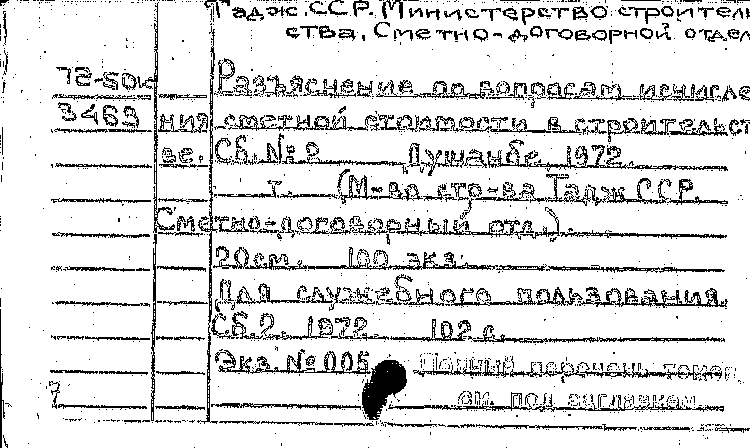 Тадж. ССР. Министерство строитель
ства. Сметно-договорной отдел
72-50к Разъяснение по вопросам исчисле
3463 ния сметной стоимости в строительст
ве. Сб. № 2 Душанбе, 1972.
т. (М-во стр-ва Тадж ССР.
Сметно-договорный отд.).
20см. 100 экз.
Для служебного пользования.
Сб. 2. 1972. 102 с.
Экз. № 005 Полный перечень томов
7 см. под заглавием.